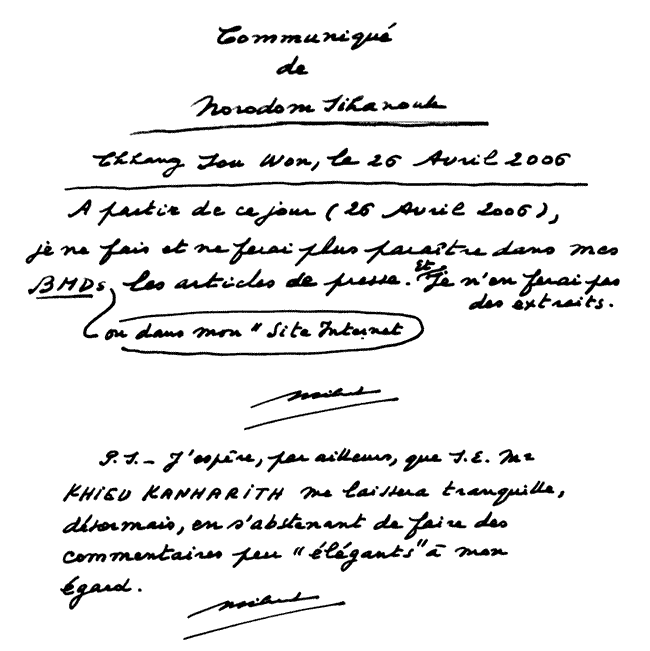 Communiqué
de
Norodom Sihanouk
Chhang Sou Won, le 26 Avril 2006
A partir de ce jour (26 Avril 2006),
je ne fais et ne ferai plus paraître dans mes
BMDs, les articles de presse. Et je n'en ferai pas
des extraits.
ou dans mon "Site Internet
P.S.- J'espère, par ailleurs, que S.E. Mr
KHIEU KANHARITH me laissera tranquille,
désormais, en s'abstenant de faire des
commentaires peu "élégants" à mon
égard.